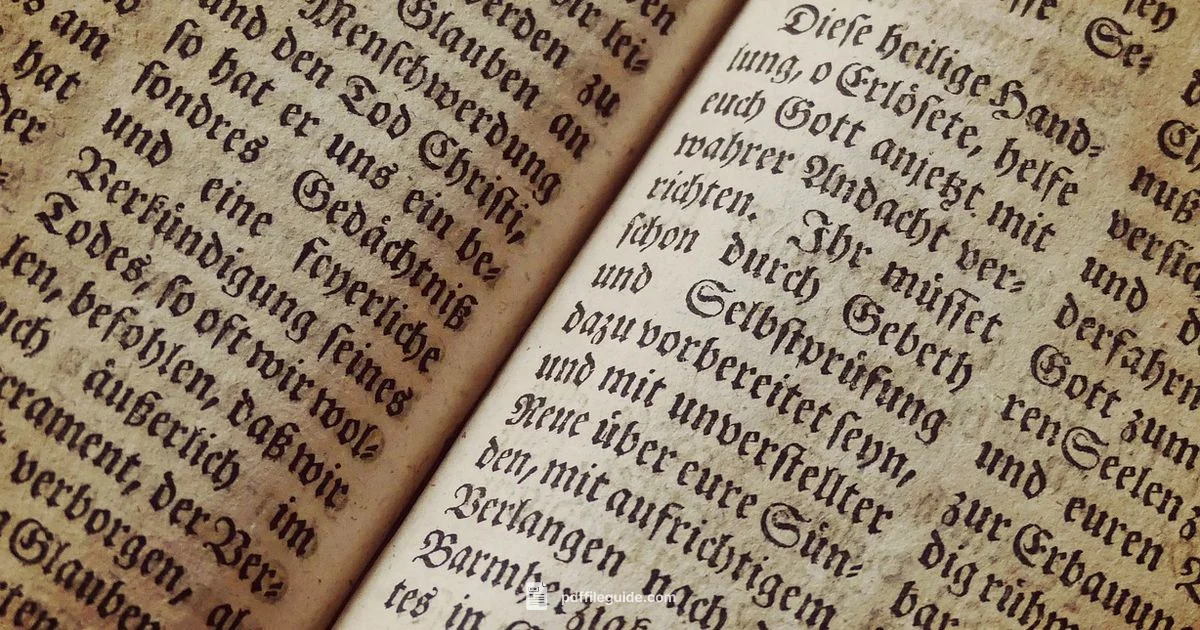 am
hat
der
wir lei=
werden zu
Glauben an
Menschwerdung
und den Tod Christi,
so hat er uns ein be=
sondres Gedächtniß
und eine feyerliche
Verkündigung seines
Todes, so oft wir wol=
len, befohlen, daß wir
äußerlich im
der Ver=
verborgen,
Glauben
Diese heilige Hand=
lung, o Erlösete, helfe
euch Gott anjetzt mit
wahrer Andacht ver=
richten. Ihr müsset
schon durch Gebeth
und Selbstprüfung
dazu vorbereitet seyn,
und mit unverstellter
Reue über eure Sün=
den, mit aufrichtigem
Verlangen nach
tes in
Se=
und
Gott zum
ren Seelen
und euren
zur Erbauung
dig rühm
bar
pdffileguide.com